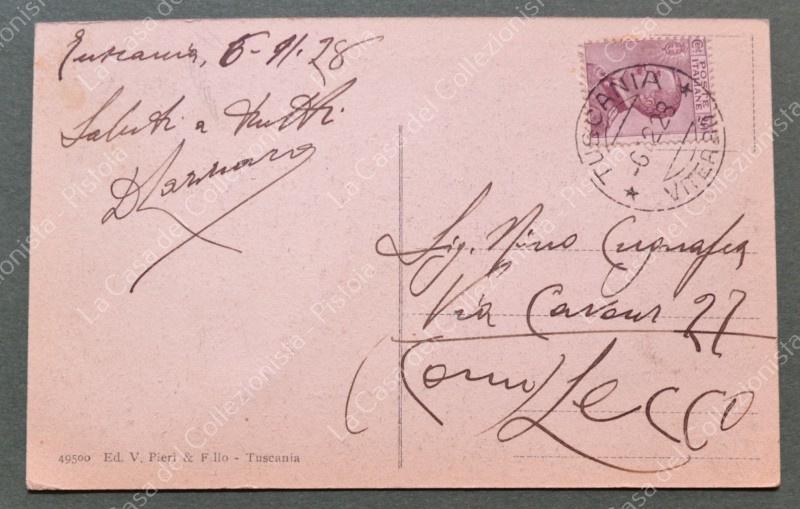 Tuscania, 6-11-28
Saluti a tutti
POSTE
ITALIANE
TUSCANIA
-6. 2 28
VITERBO
Sig. Nino
Via Cavour 27
(Como) Lecco
49500 Ed. V. Pieri & F.llo - Tuscania
La Casa del Collezionista - Pistoia